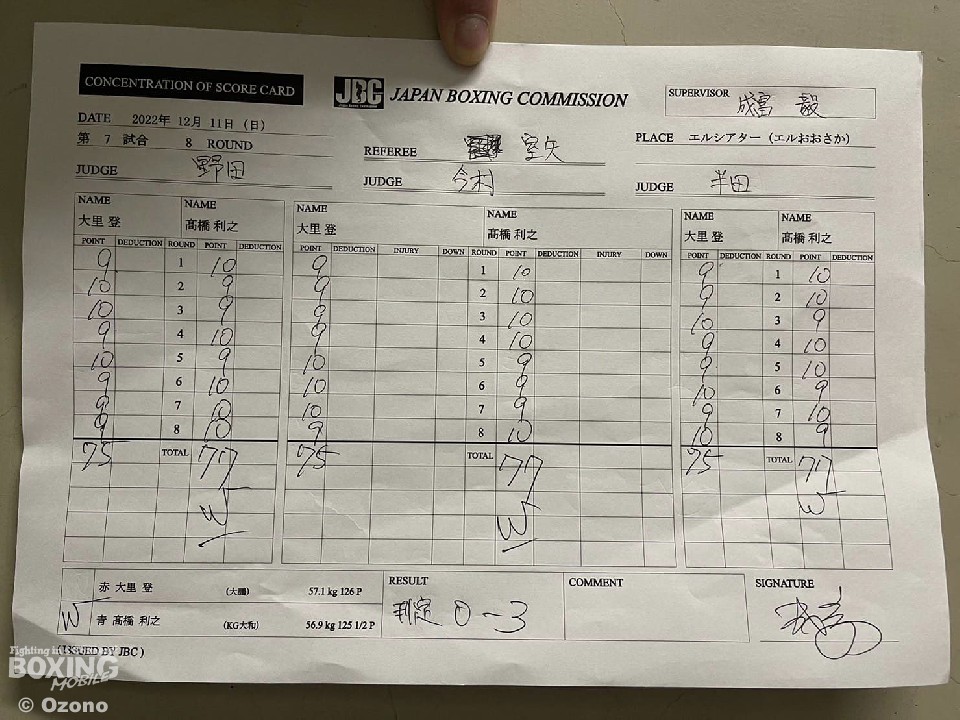 CONCENTRATION OF SCORE CARD
JBC JAPAN BOXING COMMISSION
SUPERVISOR 成富 毅
DATE 2022年 12月 11日 (日)
第 7 試合 8 ROUND
REFEREE 室矢
PLACE エルシアター (エルおおさか)
JUDGE 野田
JUDGE 今村
JUDGE 半田
NAME 大里 登 NAME 髙橋 利之
NAME 大里 登 NAME 髙橋 利之
NAME 大里 登 NAME 髙橋 利之
POINT DEDUCTION ROUND POINT DEDUCTION POINT DEDUCTION INJURY DOWN ROUND POINT DEDUCTION INJURY DOWN POINT DEDUCTION ROUND POINT DEDUCTION
9 1 10 9 1 10 9 1 10
10 2 9 9 2 10 9 2 10
10 3 9 9 3 10 10 3 9
9 4 10 9 4 10 9 4 10
10 5 9 10 5 9 9 5 10
9 6 10 10 6 9 10 6 9
9 7 10 10 7 9 9 7 10
9 8 10 9 8 10 10 8 9
75 TOTAL 77 75 TOTAL 77 75 TOTAL 77
W W W
赤 大里 登 (大鵬) 57.1 kg 126 P
W 青 髙橋 利之 (KG大和) 56.9 kg 125 1/2 P
RESULT
判定 0-3
COMMENT
SIGNATURE
(ISSUED BY JBC)
BOXING
MOBILE
© Ozono